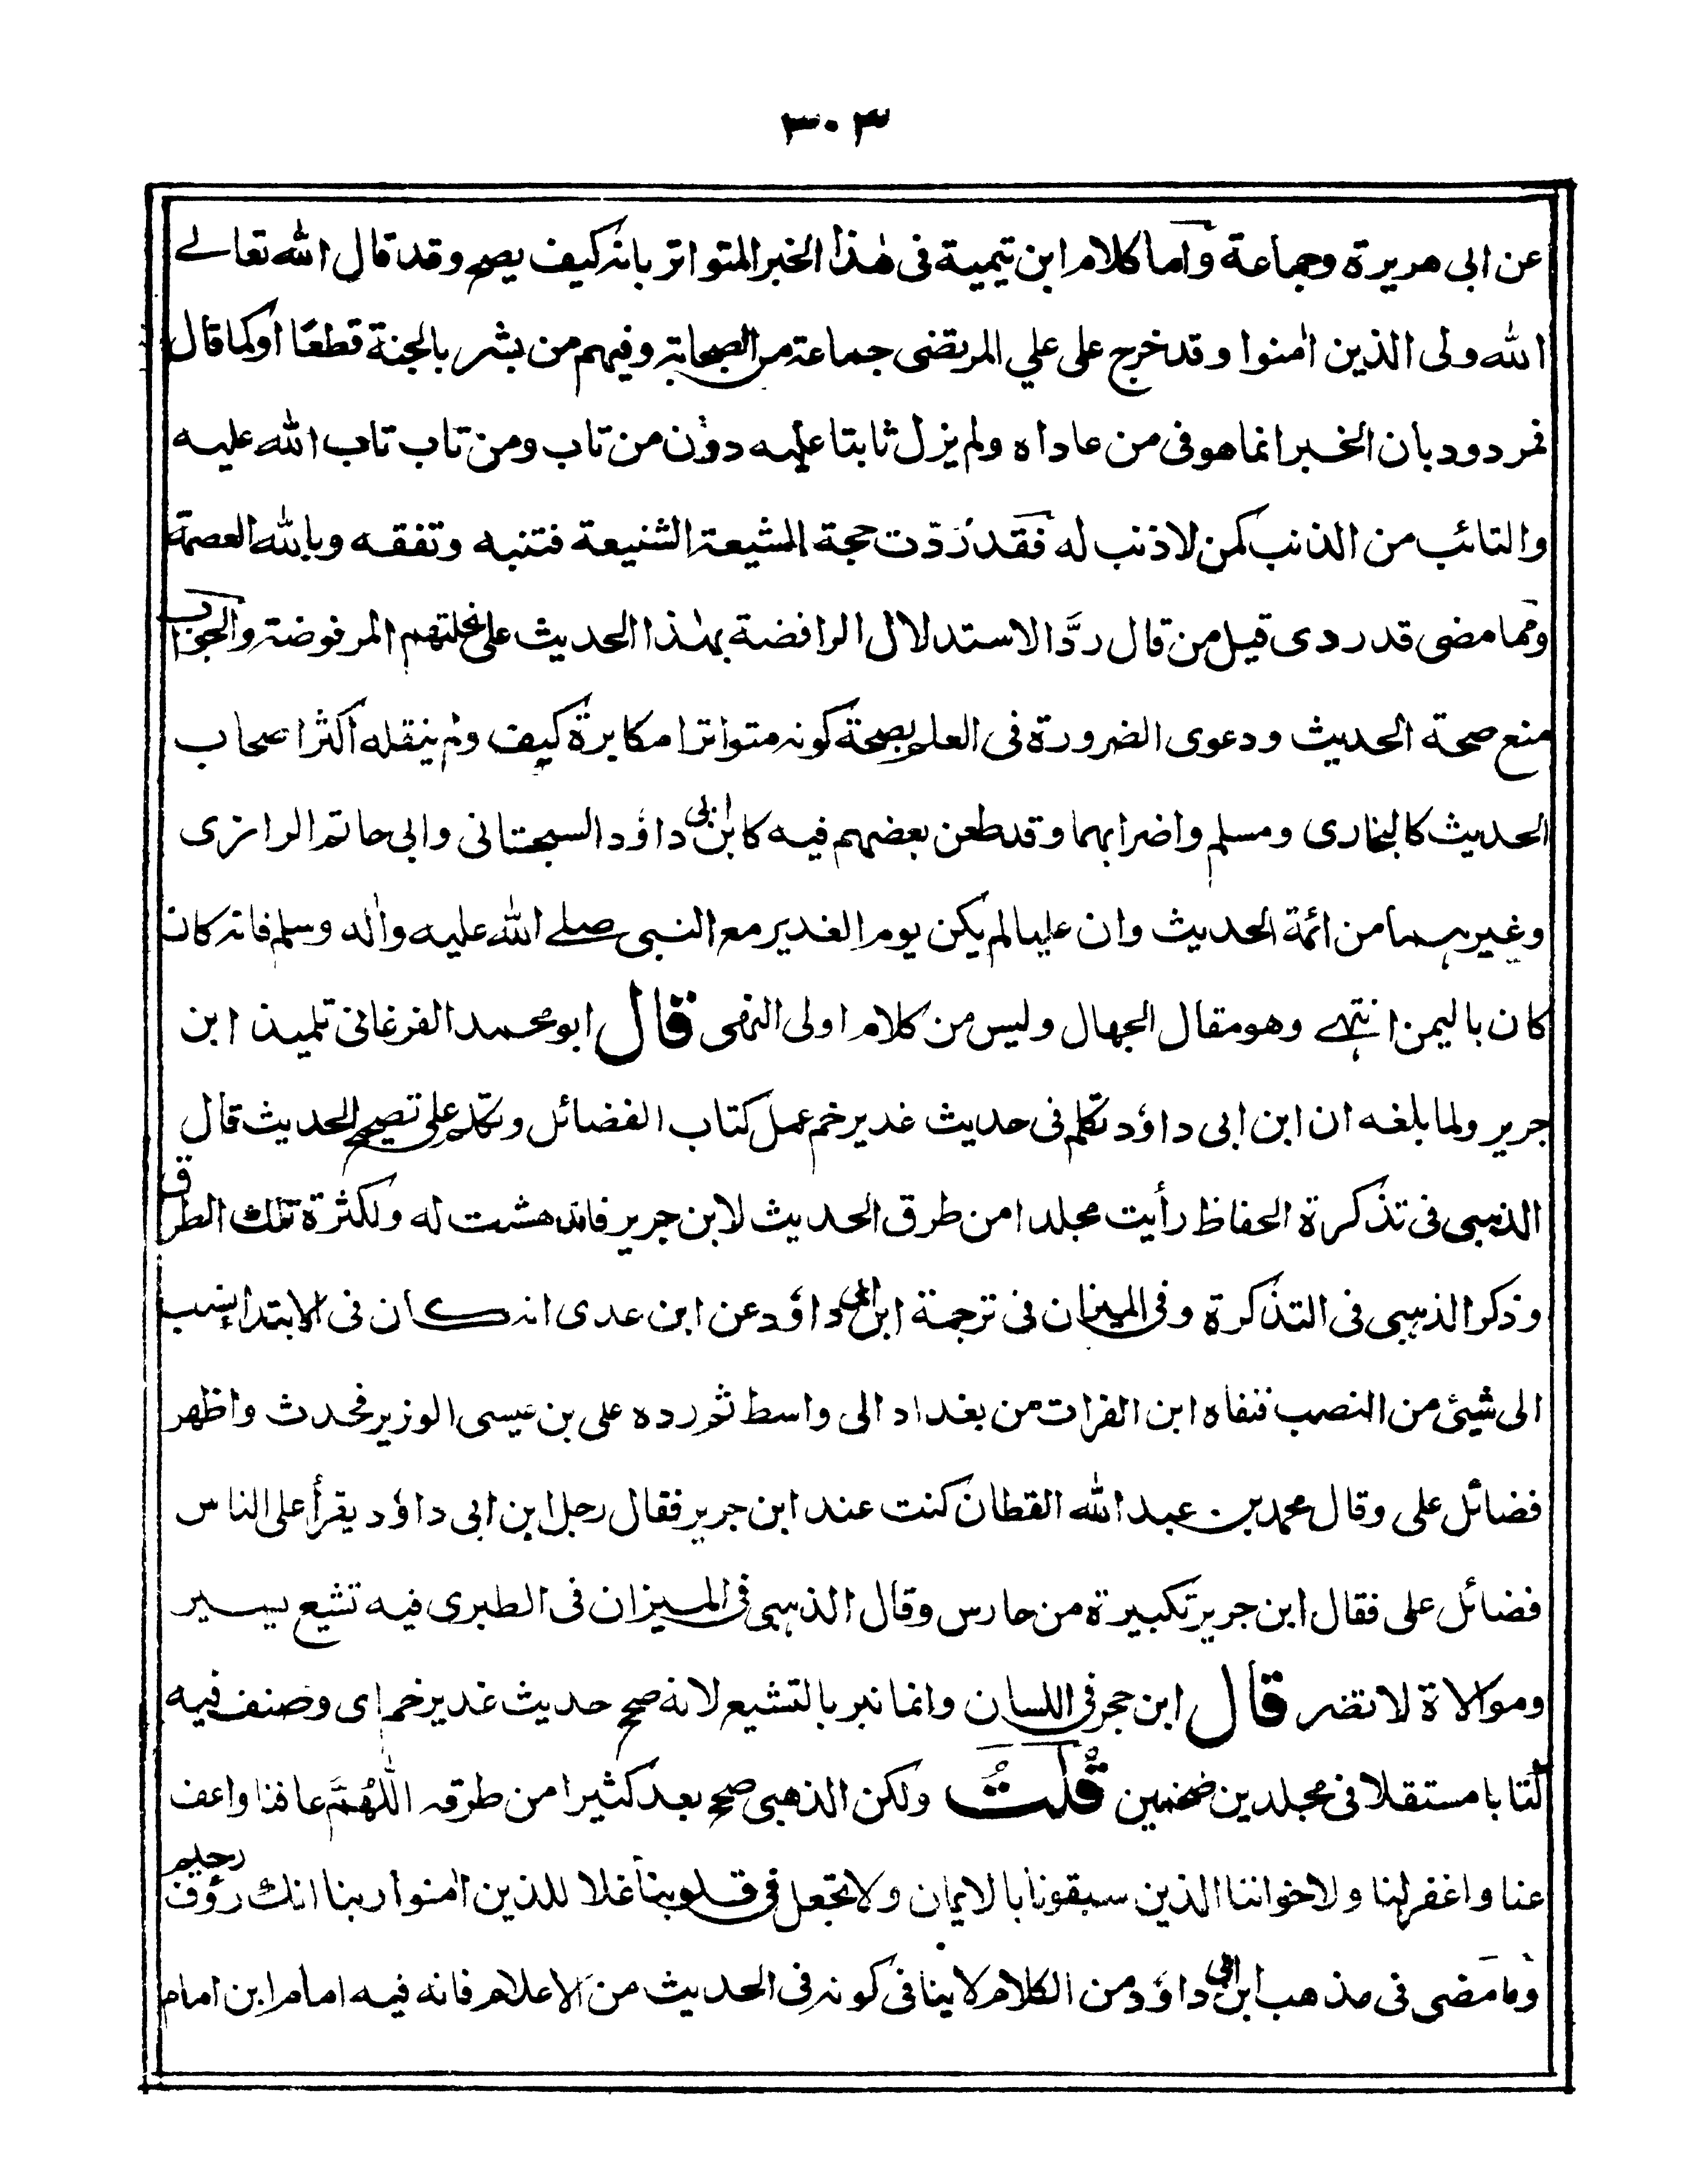 ٣٠٣
عن ابى هريرة وجماعة وأما كلام ابن تيمية فى هٰذا الخبر المتواتر بانه كيف يصح وقد قال الله تعالے
الله ولى الذين اٰمنوا وقد خرج على علي المرتضى جماعة من الصحابة وفيهم من بشر بالجنة قطعًا اوكما قال
فمردود بان الخبر انما هو فى من عاداه ولم يزل ثابتا عليه دون من تاب ومن تاب تاب الله عليه
والتائب من الذنب كمن لا ذنب له فقد رُدّت حجة الشيعة الشنيعة فتنبه وتفقه وبالله العصمة
ومما مضى قد ردى قيل من قال ردَّا لاستدلال الرافضة بهٰذا الحديث على نحلتهم المرفوضة والجواب
منع صحة الحديث ودعوى الضرورة فى العلم بصحة كونه متواترا مكابرة كيف ولم ينقله اكثر اصحاب
الحديث كالبخارى ومسلم واضرابهما وقد طعن بعضهم فيه كابن ابى داؤد السجستانى وابى حاتم الرازى
وغيرهما من ائمة الحديث وان عليا لم يكن يوم الغدير مع النبى صلے الله عليه واٰله وسلم فانه كان
كان باليمن انتهے وهو مقال الجهال وليس من كلام اولى النهى قال ابو محمد الفرغانى تلميذ ابن
جرير ولما بلغه ان ابن ابى داؤد تكلم فى حديث غدير خم عمل كتاب الفضائل وتكلم على تصحيح الحديث قال
الذهبى فى تذكرة الحفاظ رأيت مجلدا من طرق الحديث لابن جرير فاندهشت له ولكثرة تلك الطرق
وذكر الذهبى فى التذكرة وفى الميزان فى ترجمة ابن ابى داؤد عن ابن عدى انه كان فى الابتدا ينسب
الى شيئ من النصب فنفاه ابن الفرات من بغداد الى واسط ثم رده على بن عيسى الوزير فحدث واظهر
فضائل على وقال محمد بن عبد الله القطان كنت عند ابن جرير فقال رجل ابن ابى داؤد يقرأ على الناس
فضائل على فقال ابن جرير تكبيرة من حارس وقال الذهبى فى الميزان فى الطبرى فيه تشيع يسير
وموالاة لا تضر قال ابن حجر فى اللسان وانما نبز بالتشيع لانه صحح حديث غدير خم اى وصنف فيه
كتابا مستقلا فى مجلدين ضخمين قُلتُ ولكن الذهبى صحح بعد كثيرا من طرقه اللّٰهُمَّ عافنا واعف
عنا واغفر لنا ولاخواننا الذين سبقونا بالايمان ولا تجعل فى قلوبنا غلا للذين اٰمنوا ربنا انك رؤف رحيم
وما مضى فى مذهب ابن ابى داؤد من الكلام لا ينافى كونه فى الحديث من الاعلام فانه فيه امام ابن امام